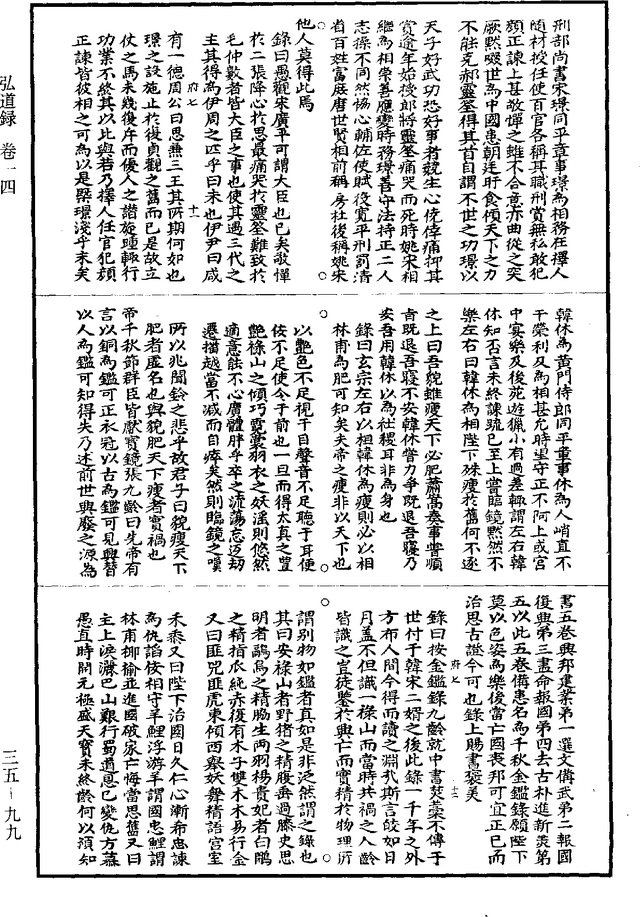 弘道錄 卷一四
三五－九九
刑部尚書宋璟同平章事璟為相務在擇人
隨材授任使百官各稱其職刑賞無私敢犯
顏正諫上甚敬憚之雖不合意亦曲從之突
厥默啜世為中國患朝廷旰食傾天下之力
不能克郝靈荃得其首自謂不世之功璟以
天子好武功恐好事者競生心僥倖痛抑其
賞逾年始授郎將靈荃痛哭而死時姚宋相
繼為相崇善應變時務璟善守法持正二人
志操不同然協心輔佐使賦役寬平刑罰清
省百姓富庶唐世賢相前稱房杜後稱姚宋
他人莫得此焉
錄曰愚觀宋廣平可謂大臣也已矣敬憚
於二張降心於思最痛哭於靈荃難致於
毛仲數者皆大臣之事也使其遇三代之
主其得為伊周之匹乎曰未也伊尹曰咸
府七 十一
有一德周公曰思兼三王其所期何如也
璟之設施止於復貞觀之舊而已是故立
仗之馬未幾復斥而優人之諧旋踵輒行
功業不終其以此與若乃擇人任官犯顏
正諫皆彼相之可為以是槩璟淺乎末矣
韓休為黃門侍郎同平章事休為人峭直不
干榮利及為相甚允時望守正不阿上或宮
中宴樂及後苑遊獵小有過差輒謂左右韓
休知否言未終諫疏已至上嘗臨鏡默然不
樂左右曰韓休為相陛下殊瘦於舊何不逐
之上曰吾貌雖瘦天下必肥蕭嵩奏事嘗順
旨既退吾寢不安韓休嘗力爭既退吾寢乃
安吾用韓休以為社稷耳非為身也
錄曰玄宗左右以相韓休為瘦則必以相
林甫為肥可知矣夫帝之瘦非以天下也
以艷色不足視于目聲音不足聽于耳便
佞不足使令于前也一旦而得太真之豐
艷祿山之傾巧霓裳羽衣之妖淫則悠然
適意能不心廣體胖乎卒之流蕩忘返劫
遷播越當不減而自瘠矣然則臨鏡之嘆
所以兆聞鈴之悲乎故君子曰貌瘦天下
肥者虛名也與貌肥天下瘦者實禍也
帝千秋節群臣皆獻寶鏡張九齡曰先帝有
言以銅為鑑可正衣冠以古為鑑可見興替
以人為鑑可知得失乃述前世興廢之源為
書五卷興邦建業第一選文備武第二報國
復興第三盡命報國第四去古朴進新美第
五以此五卷備患名為千秋金鑑錄願陛下
莫以色姿為樂後當亡國喪邦可宜正己而
治思古證今可也錄上賜書褒美
府七 十二
錄曰按金鑑錄九齡就中書焚藁不傳于
世付于韓宋二婿之後此錄一千年之外
方布人間今得而讀之淵哉斯言皎如日
月盖不但識一祿山而當時共禍之人齡
皆識之豈徒鑒於興亡而實精於物理所
謂別物如鑑者真如是非泛然謂之錄也
其曰安祿山者野猪之精腹垂過膝史思
明者鷂鳥之精肠生兩羽楊貴妃者白鷳
之精指爪純赤復有木子雙木木易行金
又曰匪兕匪虎東傾西察妖舞精語宮室
禾黍又曰陛下治國日久仁心漸希忠諫
為仇諂佞相守羊鯉浮游羊謂國忠鯉謂
林甫揶揄並進國破家亡悔當思舊又曰
主上淚灑巴山艱行蜀道恩已變仇方慕
愚直時開元極盛天寶未終齡何以須知